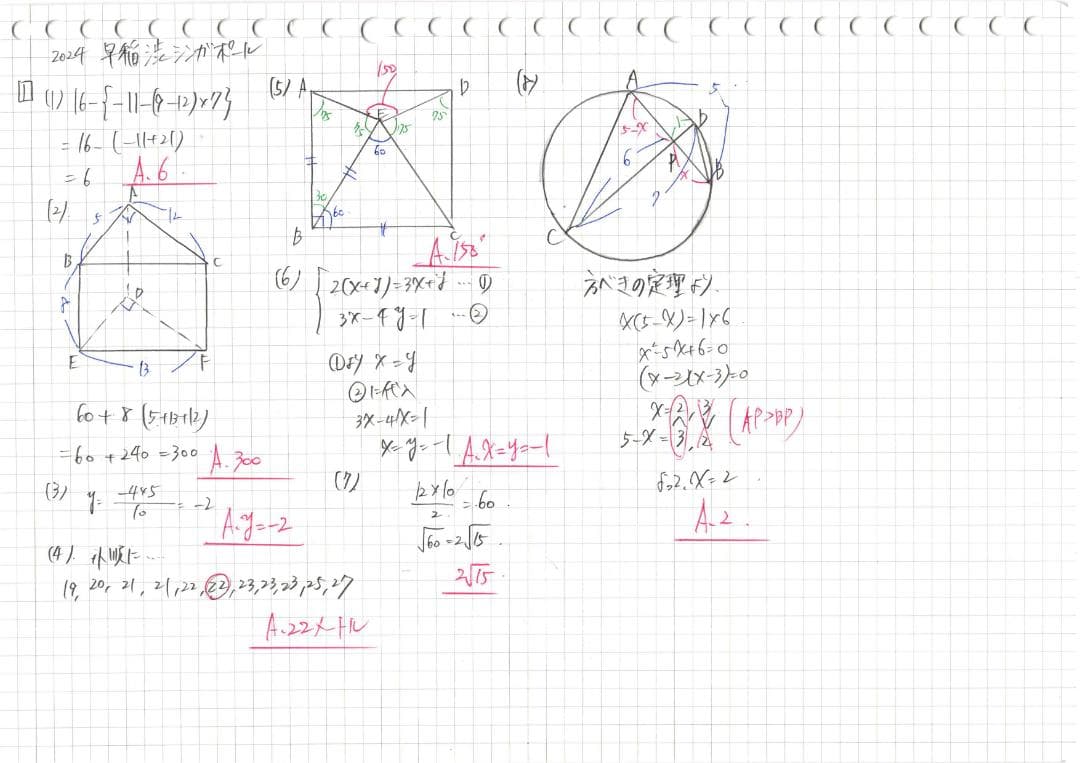 2024 早稲渋シンガポール
1
(1) 16-{-11-(9-12)×7}
=16-(-11+21)
=6 A.6
(2).
A
5 12
B C
8
D
E F
13
60+8(5+13+12)
=60+240=300 A.300
(3) y= -4×5/10 = -2
A.y=-2
(4). 小順に…
19, 20, 21, 21, 22, 22, 23, 23, 23, 25, 27
A.22メートル
(5) A D
150
E
75 75
75 75
60
30
60
B C
A.150°
(6) 2(x+y)=3x+y …①
3x-4y=1 …②
①より x=y
②に代入
3x-4x=1
x=y=-1 A.x=y=-1
(7)
12×10/2 =60.
√60=2√15.
2√15
(8)
A
5
5-x 1 D
6 P
7 x B
C
方べきの定理より.
x(5-x)=1×6.
x²-5x+6=0
(x-2)(x-3)=0
x=2, 3
5-x=3, 2 (AP>BP)
よって, x=2
A.2.